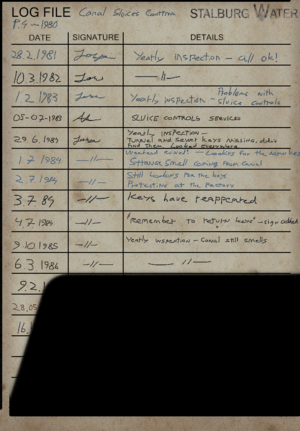 LOG FILE Canal Sluices Control STALBURG WATER
P.9 ~ 1980
DATE SIGNATURE DETAILS
28.2.1981 Yearly Inspection - all ok!
10.3.1982 -||-
1 2 1983 Yearly Inspection - Problems with Sluice controls
05-07-1983 SLUICE CONTROLS SERVICED
29.6.1983 Yearly Inspection -
Tunnel and Sewer keys missing, didn't
find them. Looked everywhere
1 7 1984 -||- Weekend ruined! - Looking for the
Strange Smell coming from Canal
2.7.1984 -||- Still looking for the keys
Protesting at the Factory
3.7.84 -||- Keys have reappeared
4.7.1984 -||- 'Remember to return here' - sign added
9.10.1985 -||- Yearly inspection - Canal still smells
6.3 1986 -||- -||-
9.2.
28.05
16.